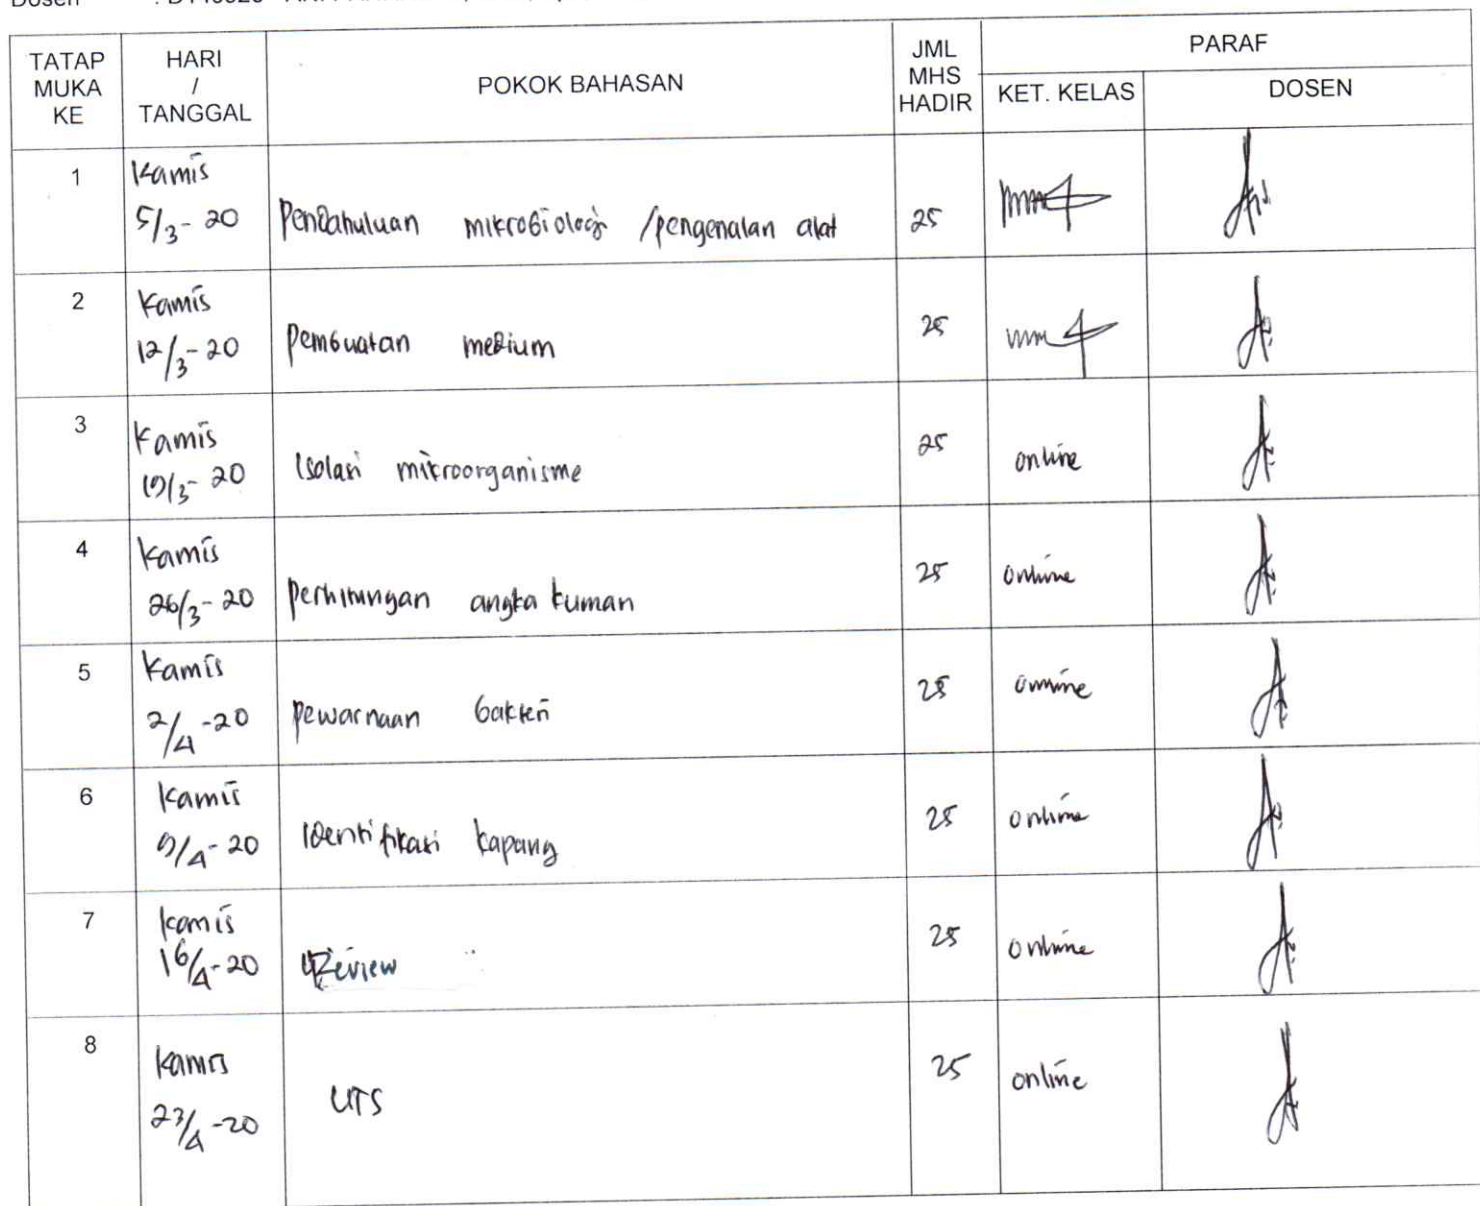 Dosen
TATAP MUKA KE
HARI / TANGGAL
POKOK BAHASAN
JML MHS HADIR
PARAF
KET. KELAS
DOSEN
1
Kamis 5/3-20
Pendahuluan mikrobiologi /pengenalan alat
25
2
Kamis 12/3-20
Pembuatan medium
25
3
Kamis 19/3-20
Isolasi mikroorganisme
25
online
4
Kamis 26/3-20
Perhitungan angka kuman
25
online
5
Kamis 2/4-20
Pewarnaan bakteri
25
online
6
Kamis 9/4-20
Identifikasi kapang
25
online
7
Kamis 16/4-20
Review
25
online
8
Kamis 23/4-20
UTS
25
online